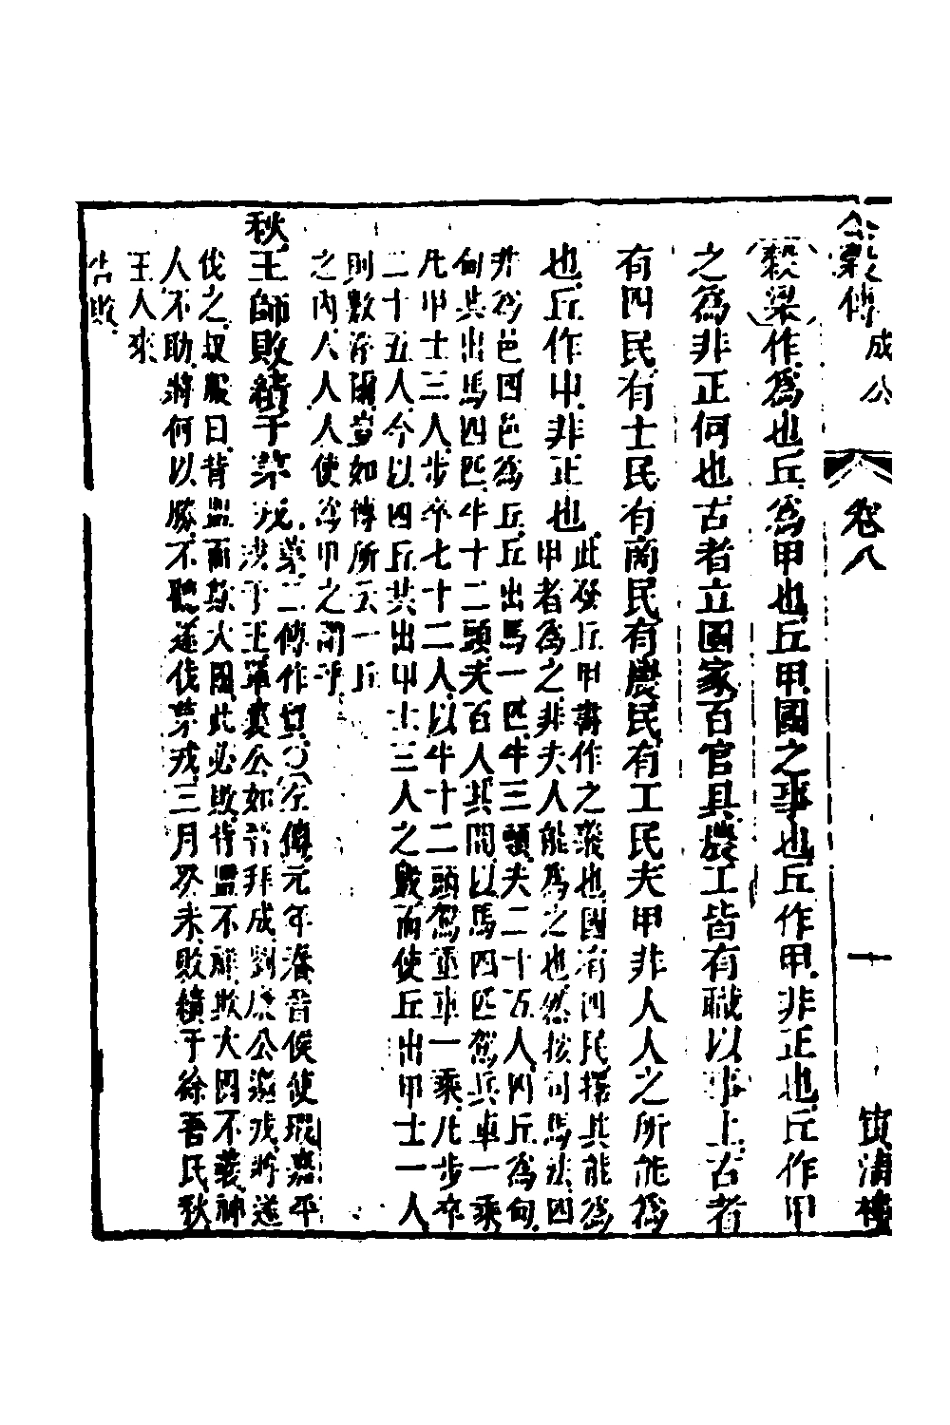 公穀傳 成公 卷八 十
穀梁作爲也丘爲甲也丘甲國之事也丘作甲非正也丘作甲
之爲非正何也古者立國家百官具農工皆有職以事上古者
有四民有士民有商民有農民有工民夫甲非人人之所能爲
也丘作甲非正也
此發丘甲書作之義也國有四民擇其能爲
甲者爲之非夫人能爲之也然按司馬法四
井爲邑四邑爲丘丘出馬一匹牛三頭夫二十五人四丘爲甸
甸共出馬四匹牛十二頭夫百人其間以馬四匹駕兵車一乘
凡甲士三人步卒七十二人以牛十二頭駕重車一乘凡步卒
二十五人今以四丘共出甲士三人之數而使丘出甲士一人
則數浮爾豈如傳所云一丘
之内人人人人使爲甲之謂乎
秋王師敗績于茅戎
茅二傳作貿○左傳元年春晉侯使瑕嘉平
戎于王單襄公如晉拜成劉康公徼戎將遂
伐之叔服曰背盟而欺大國此必敗背盟不祥欺大國不義神
人不助將何以勝不聽遂伐茅戎三月癸未敗績于徐吾氏秋
王人來
告敗